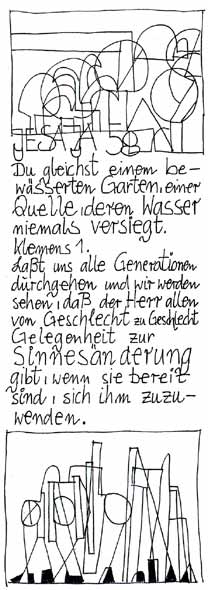 JESAJA 58
Du gleichst einem be-
wässerten Garten, einer
Quelle, deren Wasser
niemals versiegt.
Klemens 1.
Laßt uns alle Generationen
durchgehen und wir werden
sehen, daß der Herr allen
von Geschlecht zu Geschlecht
Gelegenheit zur
Sinnesänderung
gibt, wenn sie bereit
sind, sich ihm zuzu-
wenden.